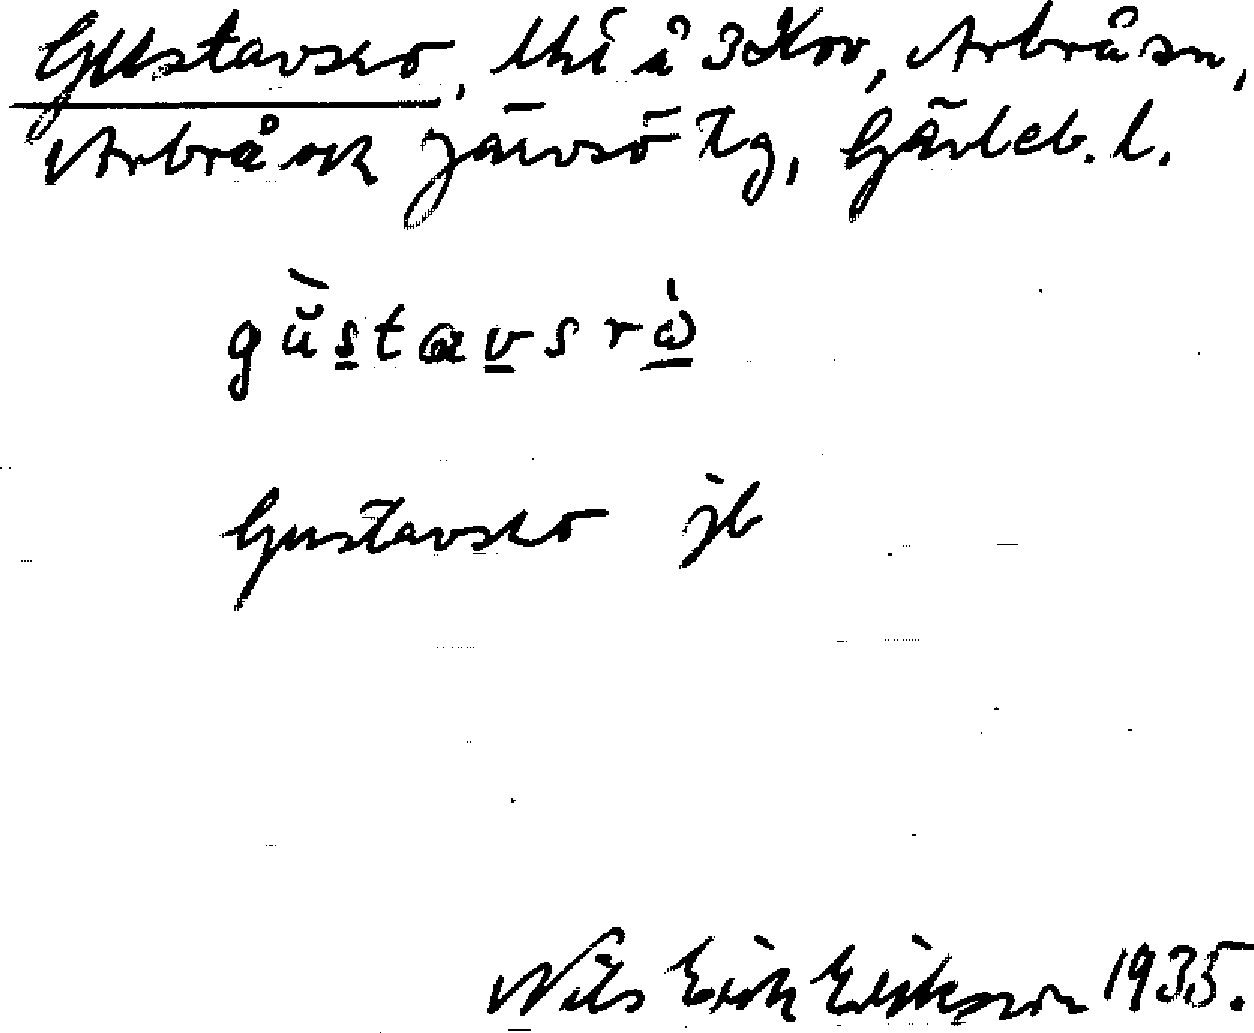 Gustavsro, thi å 3 Kov, Arbrå sn,
Arbrå och Järvsö tg, Gävleb. l.
gùstavsrò
Gustavsro jb
Nils Erik Erikson 1935.